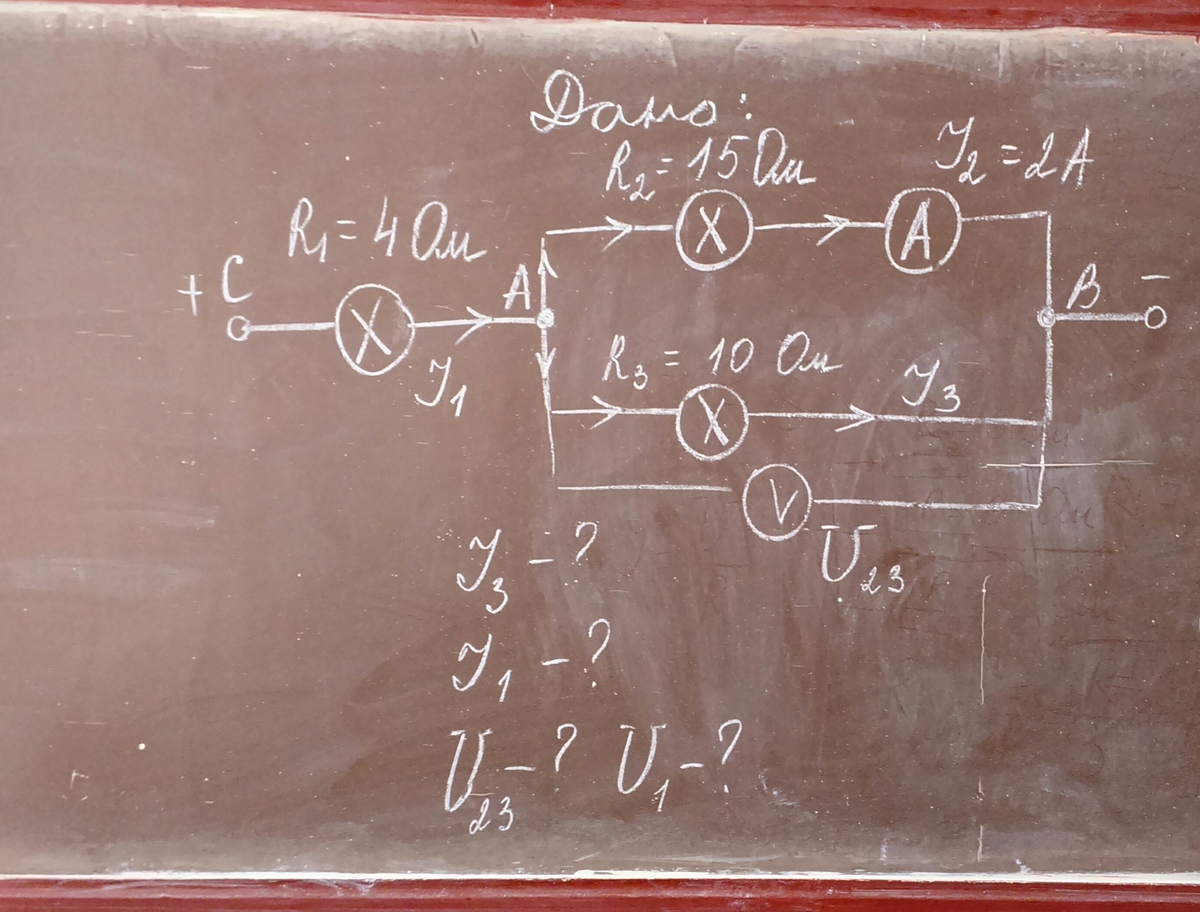 Дано:
R₂ = 15 Ом
I₂ = 2 А
R₁ = 4 Ом
X
A
+ C
A
B
-
X
I₁
R₃ = 10 Ом
I₃
X
V
U₂₃
I₃ - ?
I₁ - ?
U₂₃ - ? U₁ - ?